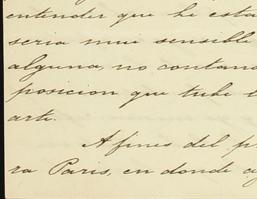 entender que he esta
seria mui sensible
alguna, no contand
posicion que tube l
arte.
A fines del p
ra Paris, en donde ay